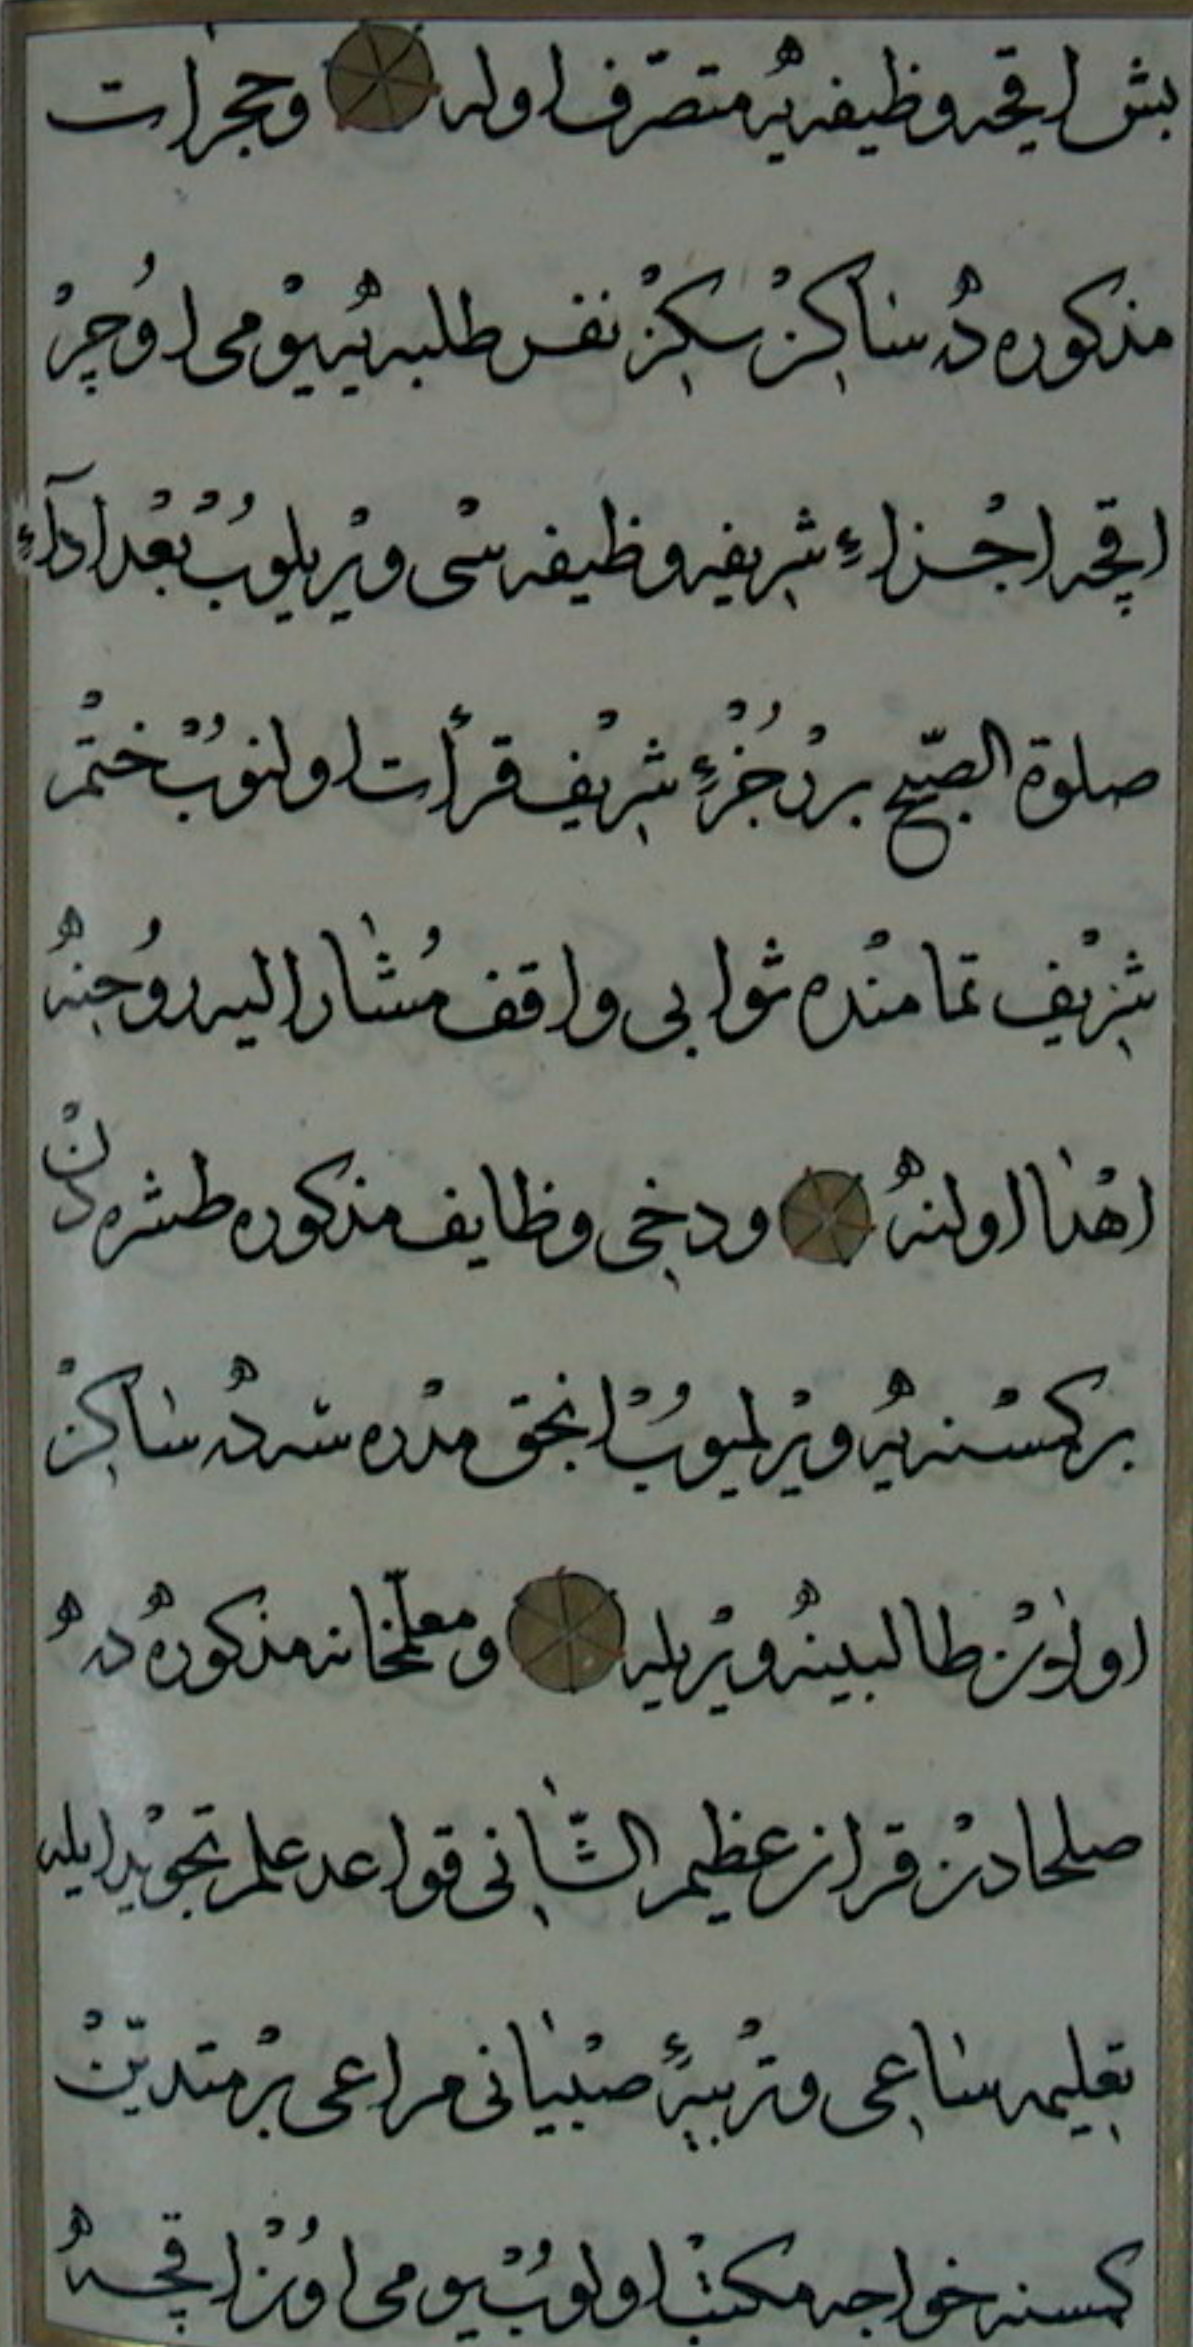 بش اقچه وظیفه یه متصرّف اوله وحجرات
مذکوره ده ساکن سکز نفر طلبه یه یومی اوچر
اقچه اجزاء شریفه وظیفه سی ویریلوب بعد اداء
صلوة الصّبح برر جزء شریف قرأت اولنوب ختم
شریف تمامنده ثوابی واقف مشار الیه روحنه
اهدا اولنه ودخی وظایف مذکوره طشره دن
بر کمسنه یه ویرلمیوب انجق مدرسه ده ساکن
اولان طالبینه ویریله ومعلّمخانه مذکوره ده
صلحادن قران عظیم الشّانی قواعد علم تجوید ایله
تعلیمه ساعی وتربیۀ صبیانی مراعی بر متدیّن
کمسنه خواجه مکتب اولوب یومی اون اقچه